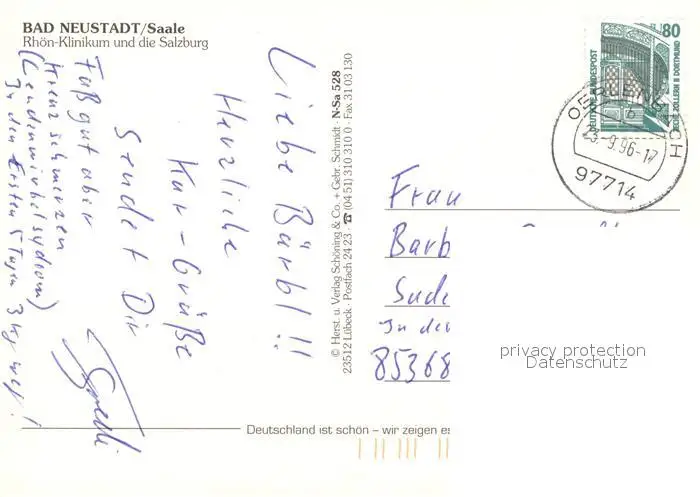 BAD NEUSTADT/Saale
Rhön-Klinikum und die Salzburg
Liebe Bärbl !!
Herzliche
Kur-Grüße
Sendet Dir
Fußgut aber
Kreuzschmerzen
(Lendenwirbelsydrom)
In den Ersten 5 Tagen 3 kg weg!
© Herst. u. Verlag Schöning & Co. + Gebr. Schmidt · N-Sa 528
23512 Lübeck · Postfach 24 23 · ☎ (04 51) 310 310 0 · Fax 31 03 130
80
DEUTSCHE BUNDESPOST
ZECHE ZOLLERN II DORTMUND
23.-9.96-17
97714
Frau
Barb
Sude
In der
85368
privacy protection
Datenschutz
Deutschland ist schön – wir zeigen es